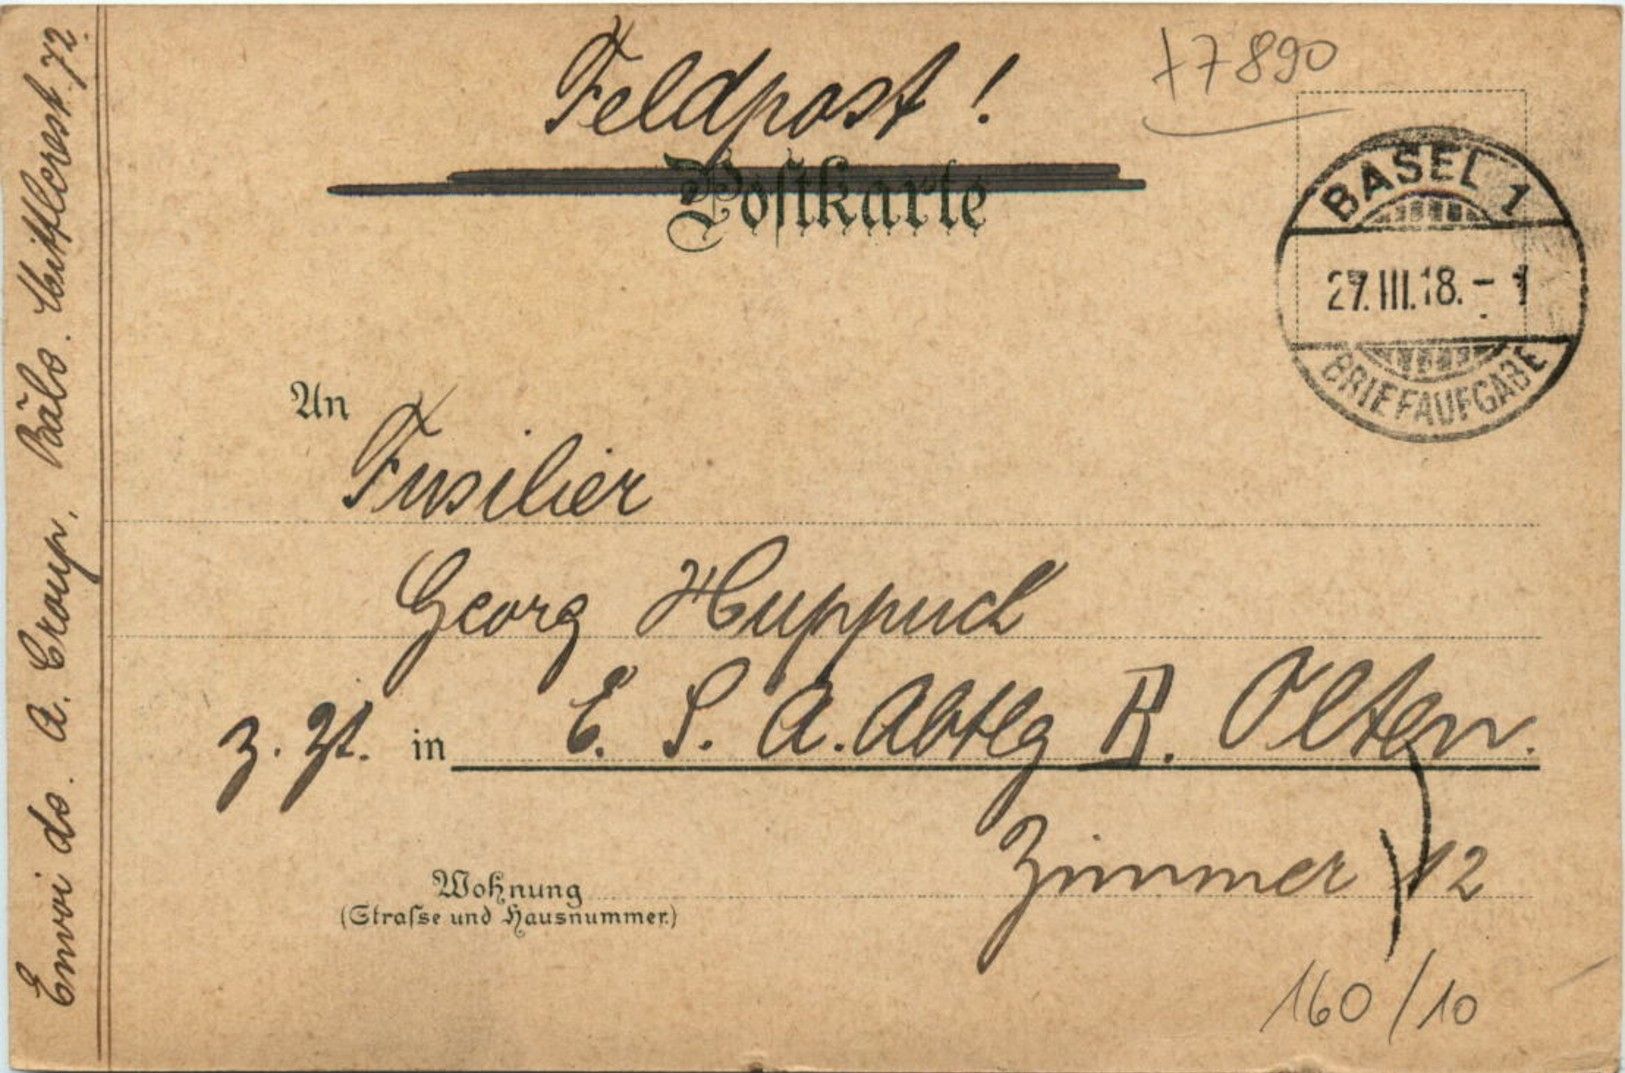 Feldpost!
17890
Postkarte
BASEL 1
27.III.18.-1
BRIEFAUFGABE
An
Fusilier
Georg Huppuck
z. Zt. in E. S. A. Abtlg B. Olten.
Zimmer 12
Wohnung
(Straſse und Hausnummer.)
160/10
Envoi de. A. Croup, Bâle. 72.